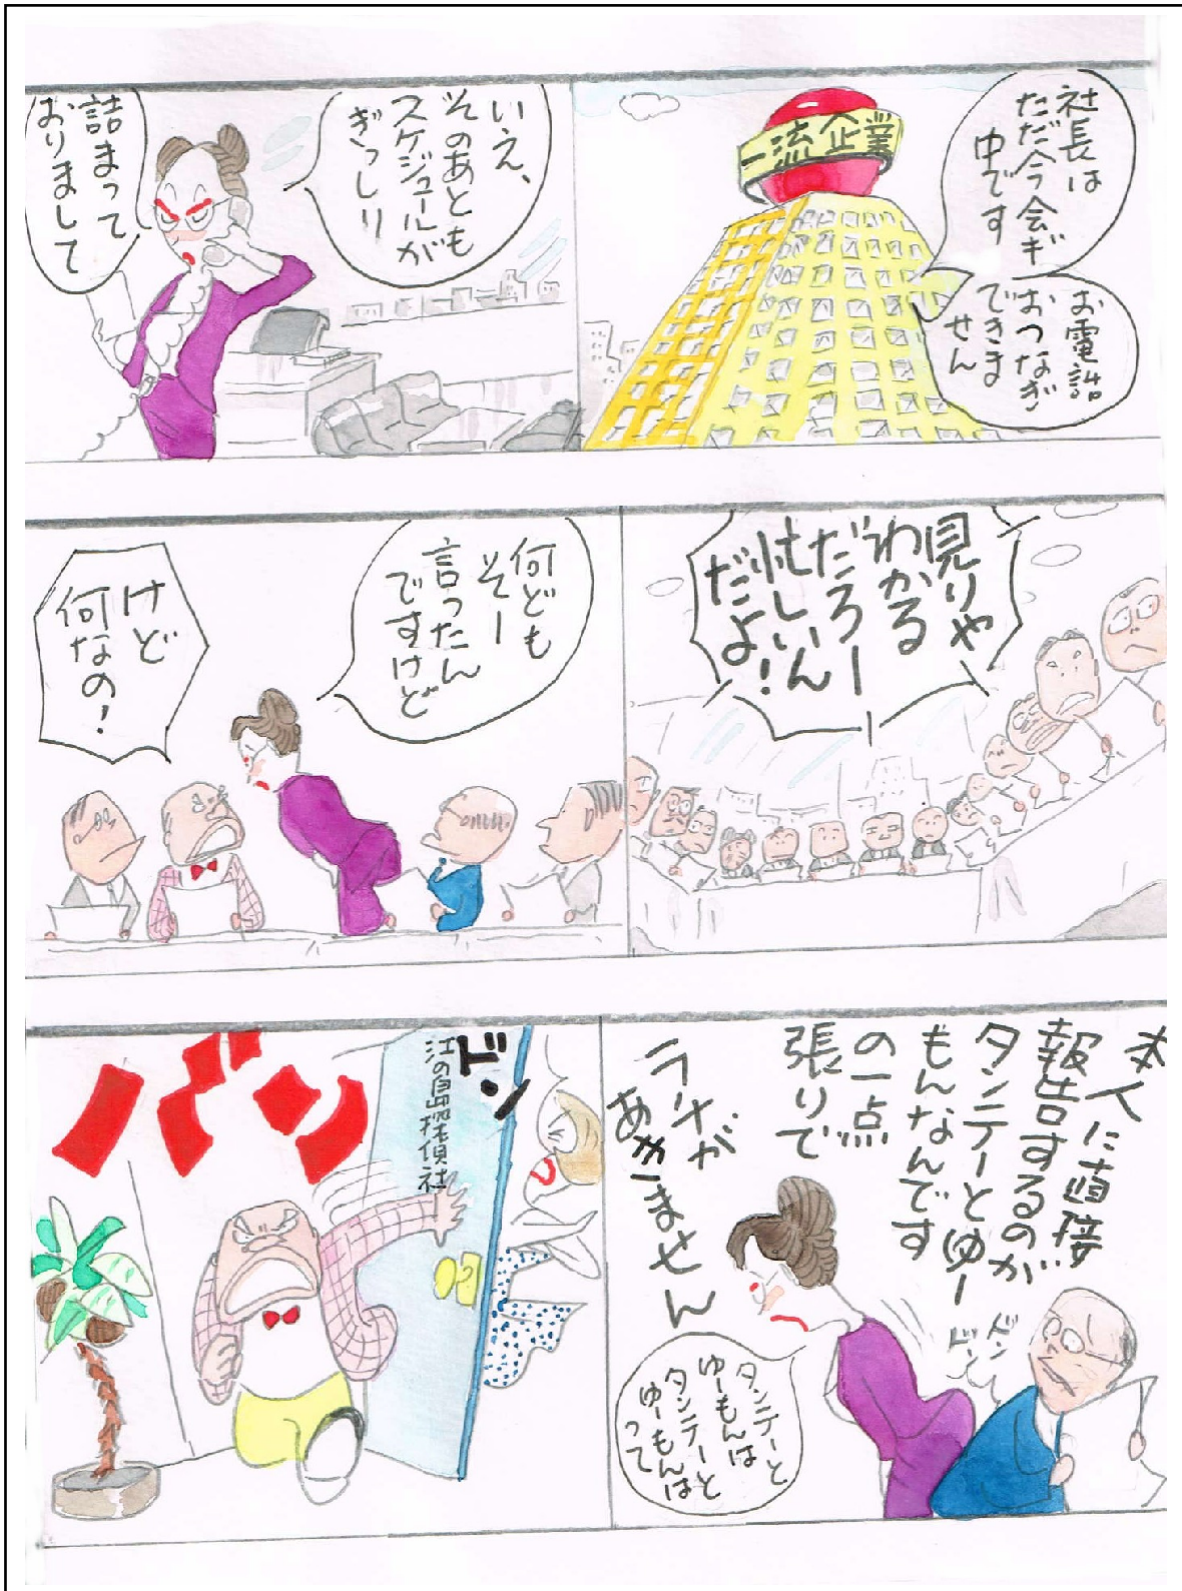 社長は
ただ今会ギ
中です
お電話
おつなぎ
できま
せん
一流企業
いえ、
そのあとも
スケジュールが
ぎっしり
詰まって
おりまして
見りゃ
わかる
だろー
忙しいん
だよ!
何ども
そー
言ったん
ですけど
けど
何なの!
本人に直接
報告するのが
タンテーとゆー
もんなんです
の一点
張りで
ラチが
あきません
ドン
ドン
タンテーと
ゆーもんは
タンテーと
ゆーもんは
って
ドン
江の島探偵社
バン